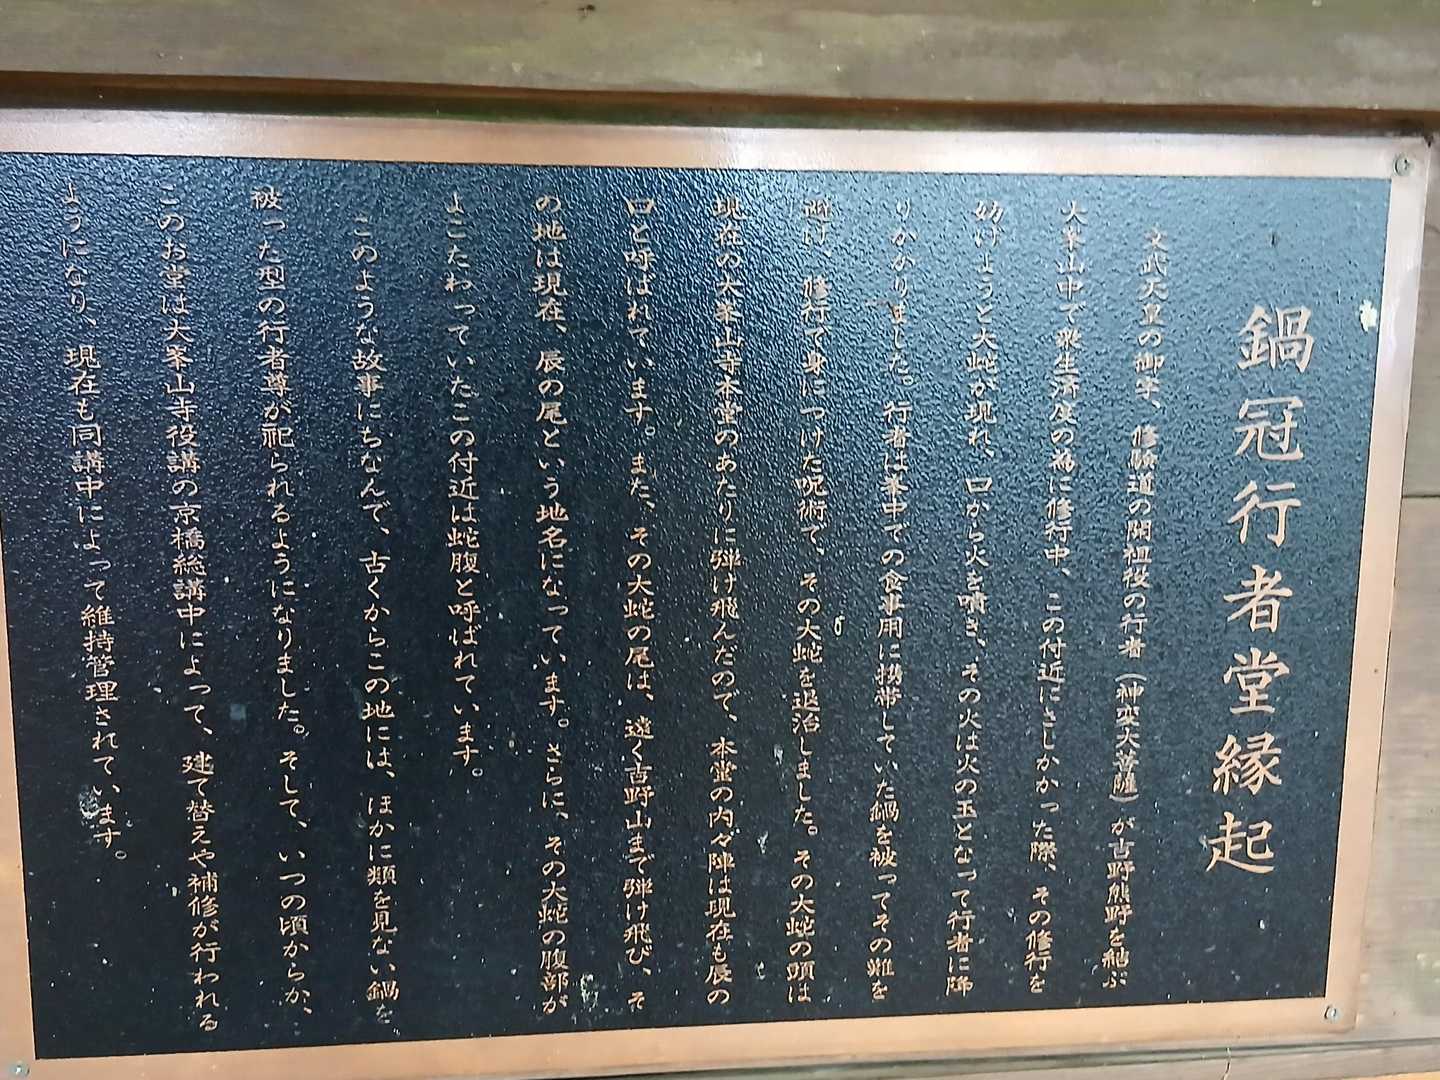 鍋冠行者堂縁起
文武天皇の御宇、修験道の開祖役の行者（神変大菩薩）が吉野熊野を結ぶ
大峯山中で衆生済度の為に修行中、この付近にさしかかった際、その修行を
妨げようと大蛇が現れ、口から火を噴き、その火は火の玉となって行者に降
りかかりました。行者は峯中での食事用に携帯していた鍋を被ってその難を
逃げ、修行で身につけた呪術で、その大蛇を退治しました。その大蛇の頭は
現在の大峯山寺本堂のあたりに弾け飛んだので、本堂の内々陣は現在も辰の
口と呼ばれています。また、その大蛇の尾は、遠く吉野山まで弾け飛び、そ
の地は現在、辰の尾という地名になっています。さらに、その大蛇の腹部が
よこたわっていたこの付近は蛇腹と呼ばれています。
このような故事にちなんで、古くからこの地には、ほかに類を見ない鍋を
被った型の行者尊が祀られるようになりました。そして、いつの頃からか、
このお堂は大峯山寺役講の京橋総講中によって、建て替えや補修が行われる
ようになり、現在も同講中によって維持管理されています。